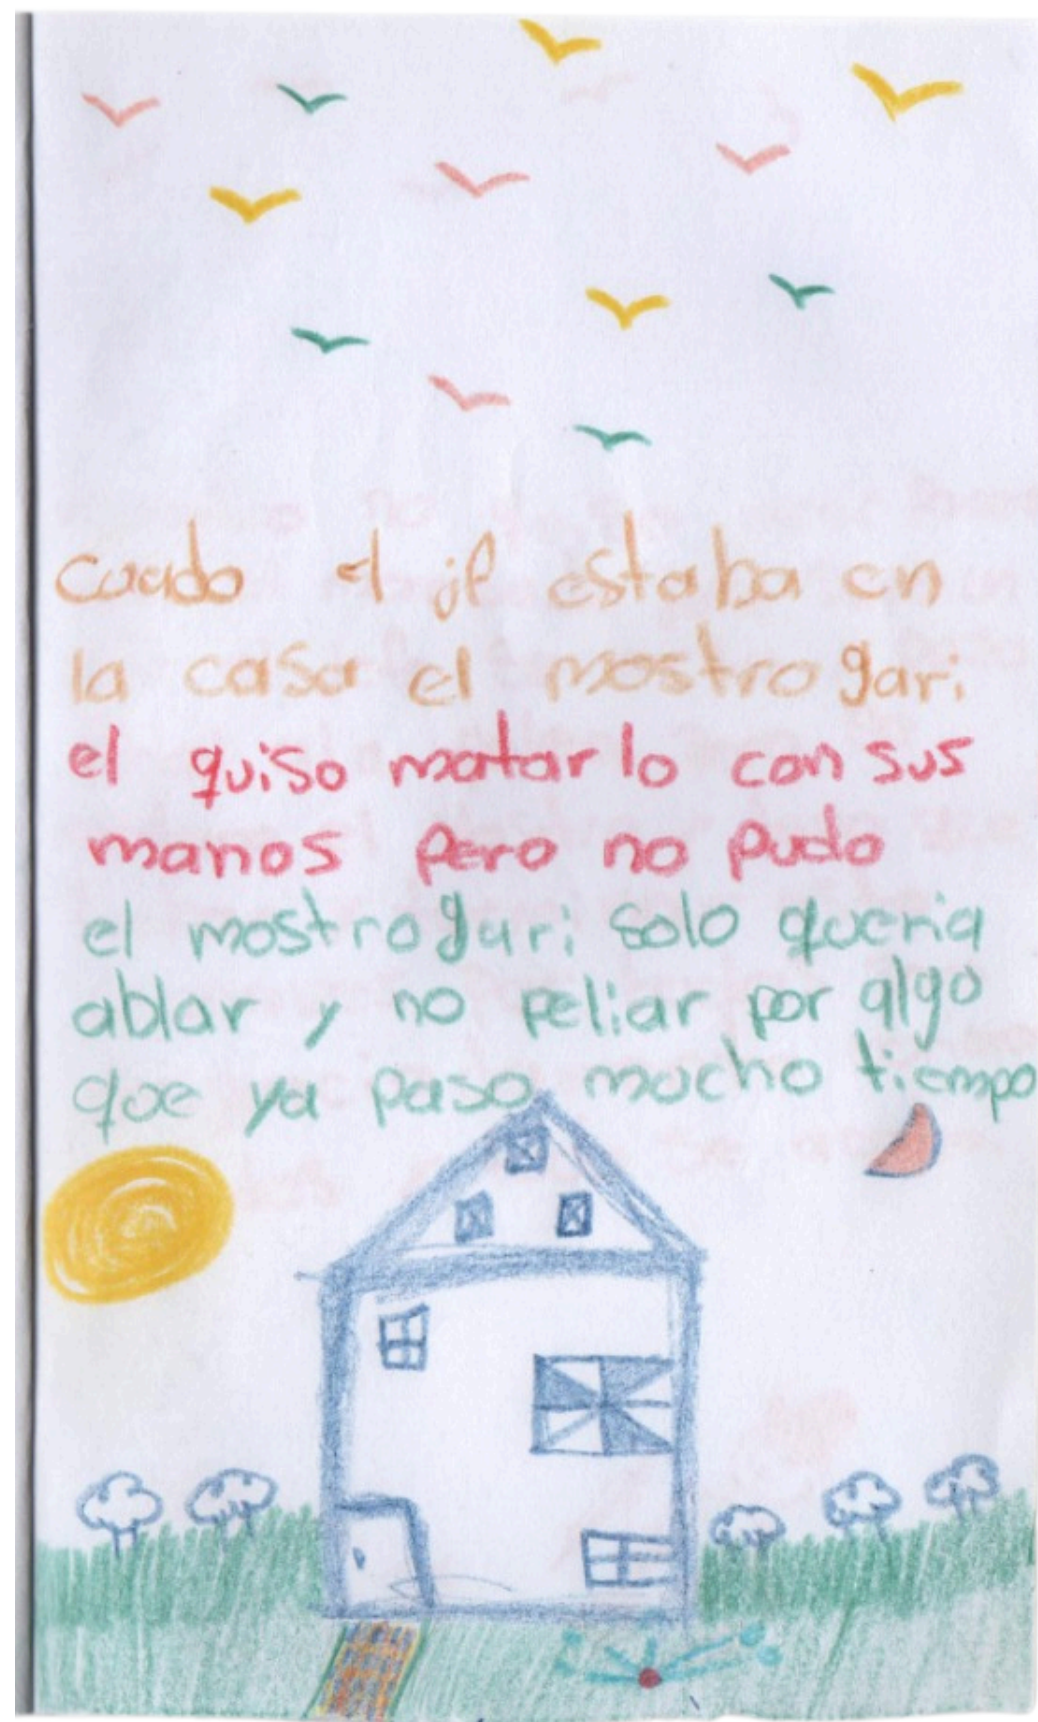 cuado el jl estaba en
la casa el mostro gari
el quiso matarlo con sus
manos pero no pudo
el mostro gari solo queria
ablar y no peliar por algo
que ya paso mucho tiempo